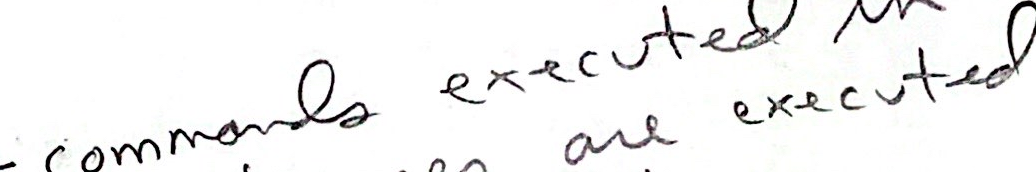 - commands executed in
are executed